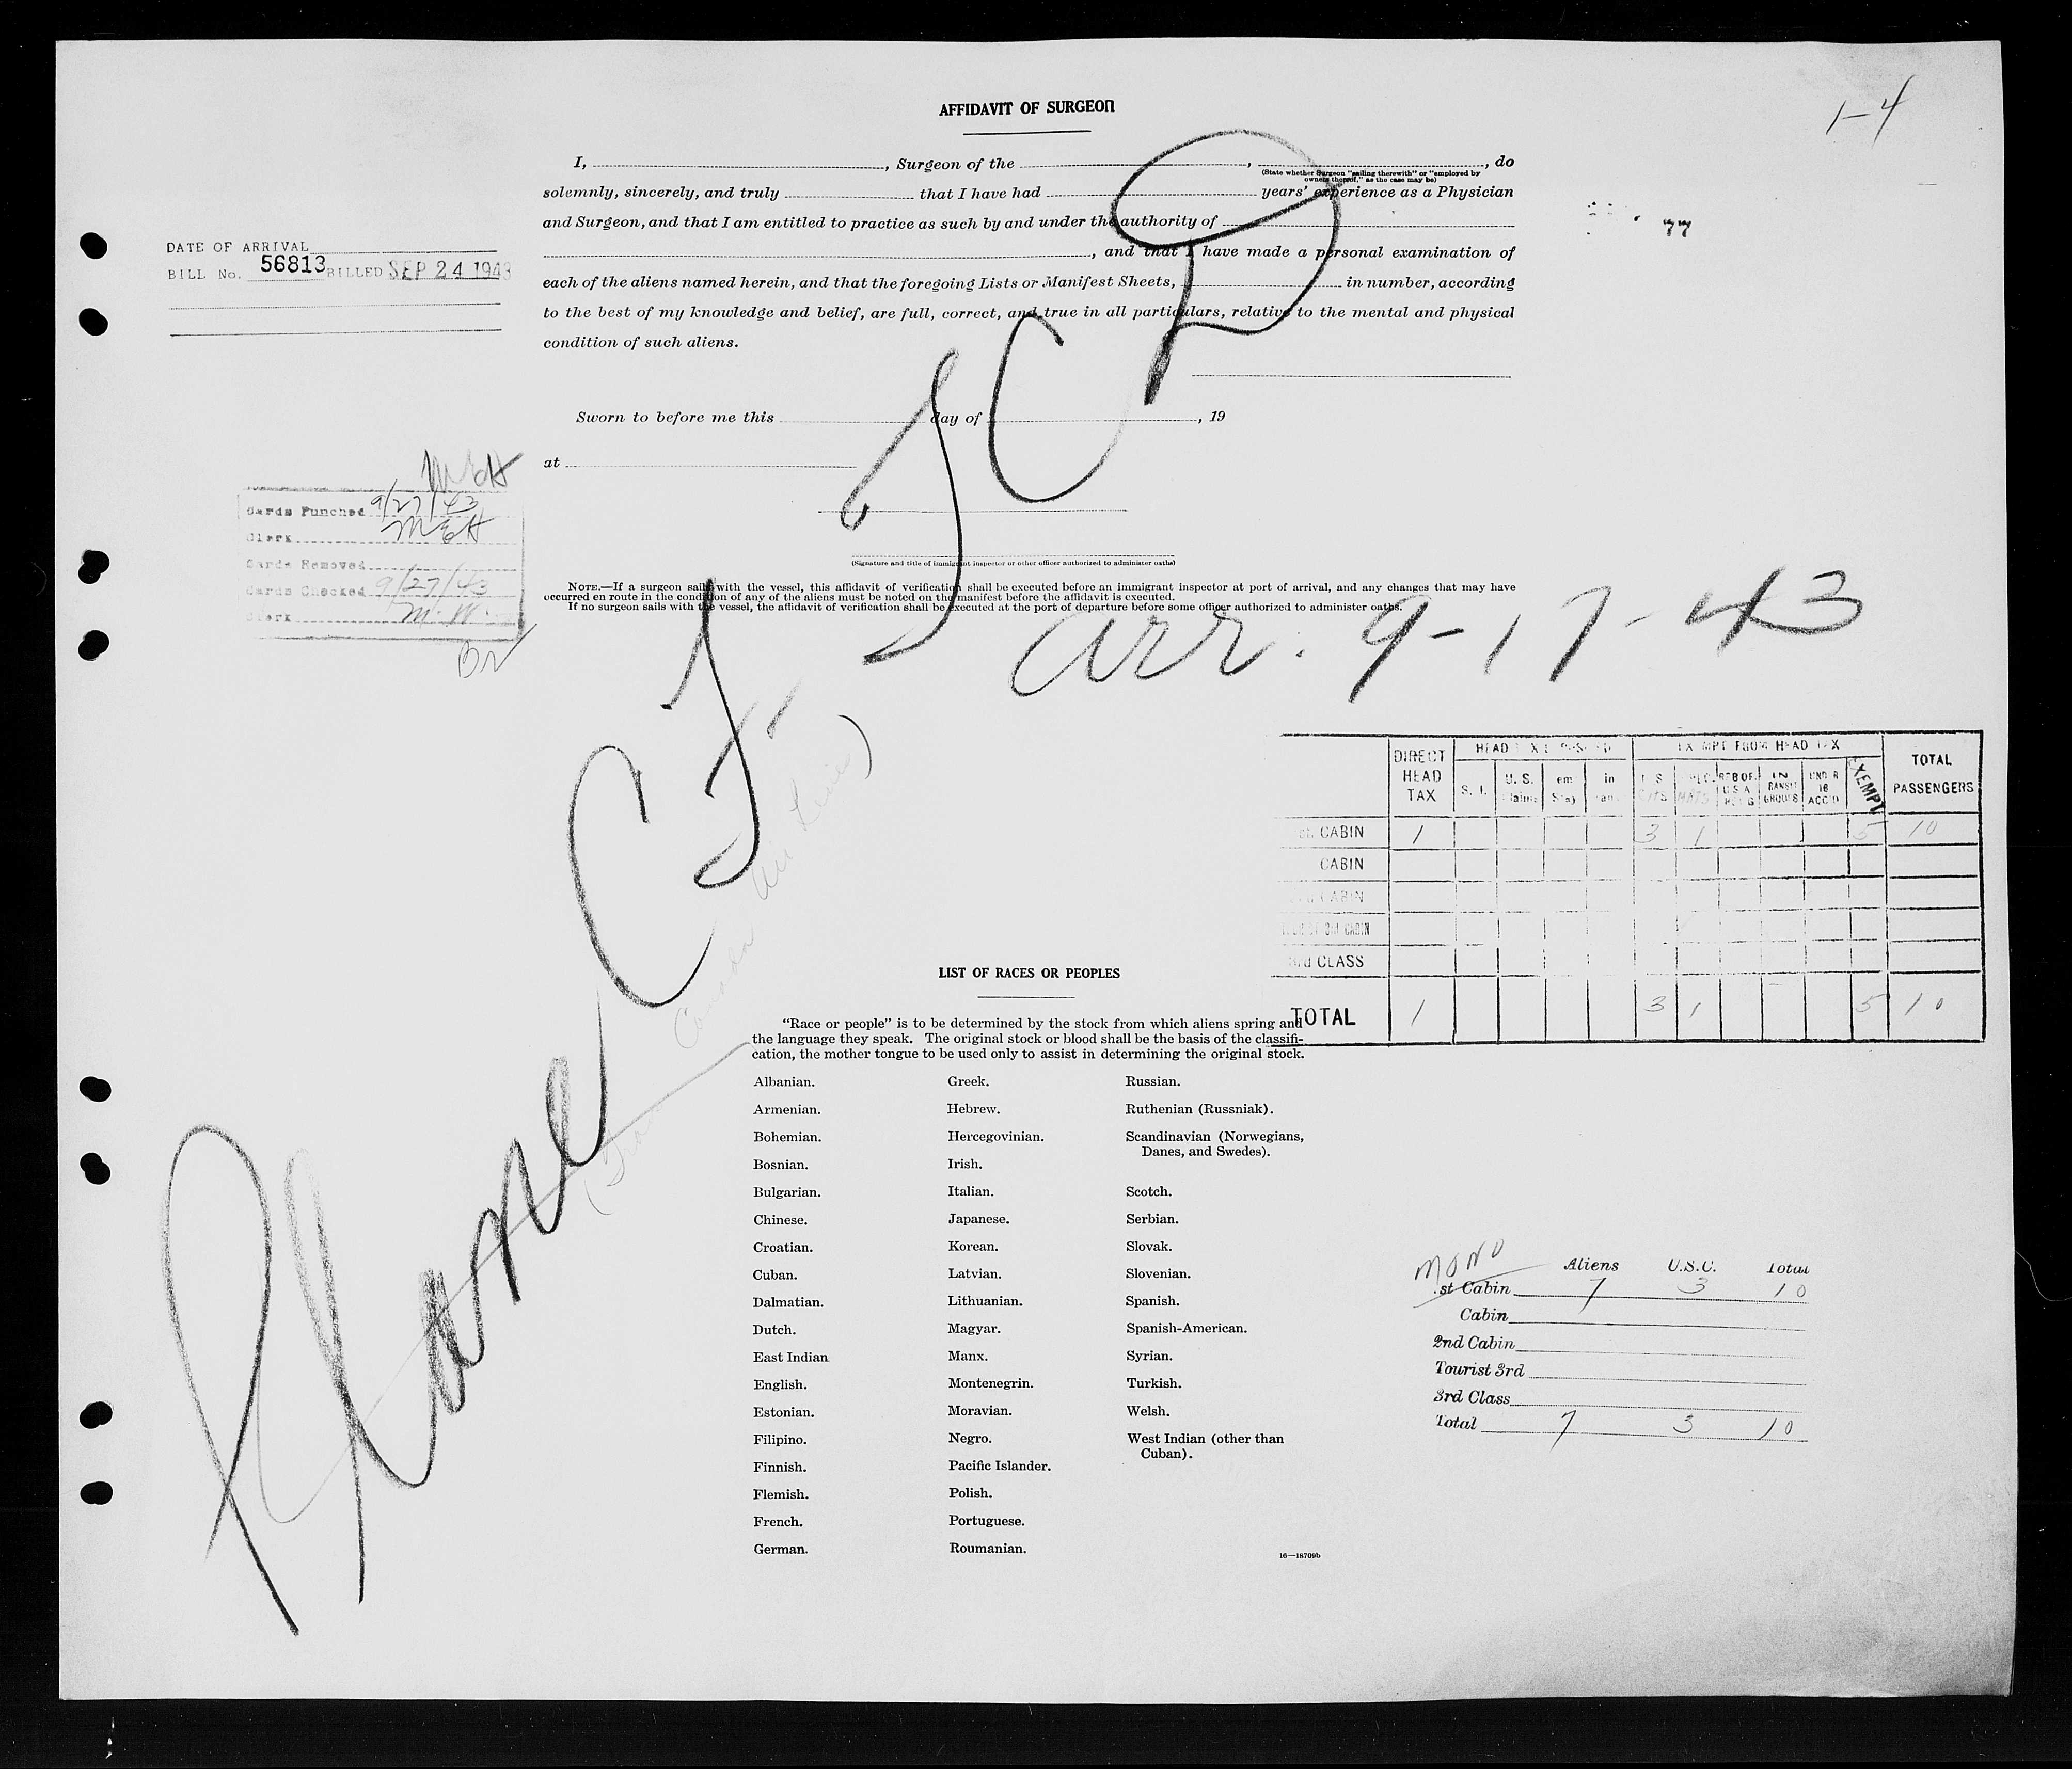 AFFIDAVIT OF SURGEON
1-4
I, , Surgeon of the , , do
(State whether Surgeon "sailing therewith" or "employed by
owners thereof," as the case may be)
solemnly, sincerely, and truly that I have had years' experience as a Physician
and Surgeon, and that I am entitled to practice as such by and under the authority of
, and that I have made a personal examination of
each of the aliens named herein, and that the foregoing Lists or Manifest Sheets, in number, according
to the best of my knowledge and belief, are full, correct, and true in all particulars, relative to the mental and physical
condition of such aliens.
77
DATE OF ARRIVAL
BILL No. 56813 BILLED SEP 24 1943
Sworn to before me this day of , 19
at
(Signature and title of immigrant inspector or other officer authorized to administer oaths)
MEH
Cards Punched 9/27/43
Clerk MEH
Cards Removed
Cards Checked 9/27/43
Clerk M.W.
NOTE.—If a surgeon sails with the vessel, this affidavit of verification shall be executed before an immigrant inspector at port of arrival, and any changes that may have
occurred en route in the condition of any of the aliens must be noted on the manifest before the affidavit is executed.
If no surgeon sails with the vessel, the affidavit of verification shall be executed at the port of departure before some officer authorized to administer oaths.
Plane CF-
arr. 9-17-43
Canada Air Lines)
DIRECT HEAD TAX
S. I.
U. S.
in
EXEMPT FROM HEAD TAX
IN TRANSIT GROUPS
UNDER 16 ACC'D
EXEMPT
TOTAL PASSENGERS
1st CABIN 1 3 1 5 10
CABIN
CABIN
3rd CABIN
3rd CLASS
TOTAL 1 3 1 5 10
LIST OF RACES OR PEOPLES
"Race or people" is to be determined by the stock from which aliens spring and
the language they speak. The original stock or blood shall be the basis of the classifi-
cation, the mother tongue to be used only to assist in determining the original stock.
Albanian. Greek. Russian.
Armenian. Hebrew. Ruthenian (Russniak).
Bohemian. Hercegovinian. Scandinavian (Norwegians,
Danes, and Swedes).
Bosnian. Irish.
Bulgarian. Italian. Scotch.
Chinese. Japanese. Serbian.
Croatian. Korean. Slovak.
Cuban. Latvian. Slovenian.
Dalmatian. Lithuanian. Spanish.
Dutch. Magyar. Spanish-American.
East Indian Manx. Syrian.
English. Montenegrin. Turkish.
Estonian. Moravian. Welsh.
Filipino. Negro. West Indian (other than
Cuban).
Finnish. Pacific Islander.
Flemish. Polish.
French. Portuguese.
German. Roumanian.
16—18709b
MONO Aliens U.S.C. Total
st Cabin 7 3 10
Cabin
2nd Cabin
Tourist 3rd
3rd Class
Total 7 3 10